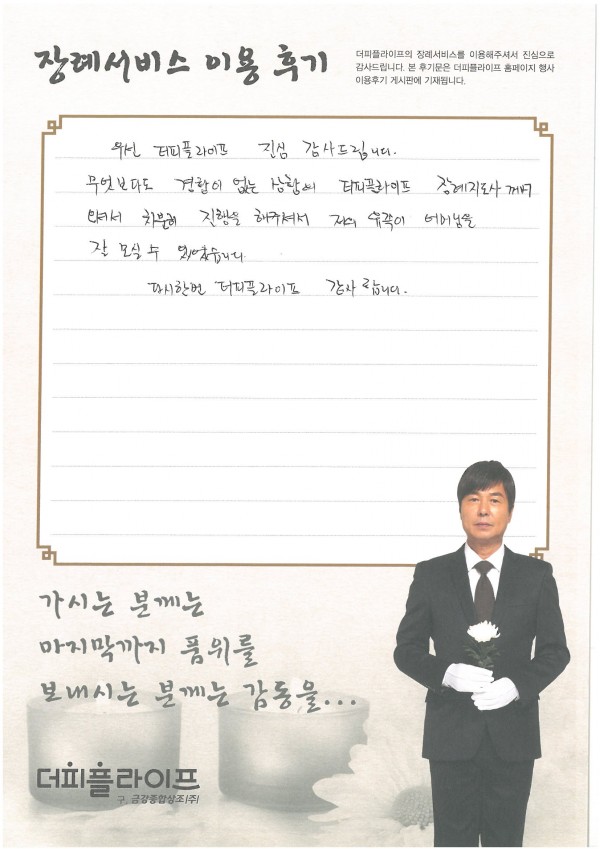 장례서비스 이용 후기
더피플라이프의 장례서비스를 이용해주셔서 진심으로
감사드립니다. 본 후기문은 더피플라이프 홈페이지 행사
이용후기 게시판에 기재됩니다.
우선 더피플라이프 진심 감사드립니다.
무엇보다도 경험이 없는 상황에 더피플라이프 장례지도사 께서
차분히 진행을 해주셔서 저희 유족이 어머님을
잘 모실 수 있었습니다.
다시한번 더피플라이프 감사 립니다.
가시는 분께는
마지막까지 품위를
보내시는 분께는 감동을...
더피플라이프
구. 금강종합상조(주)